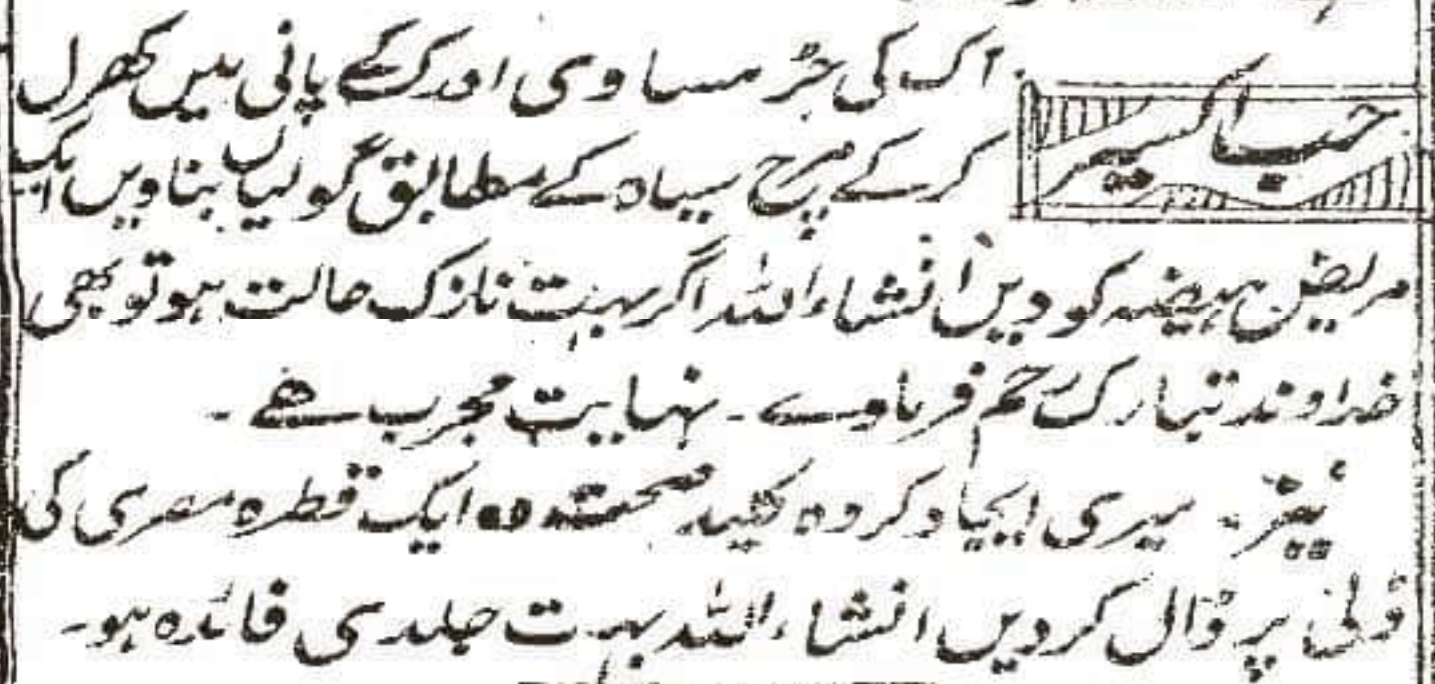 حب اکسیر
آک کی جڑ مساوی ادرک کے پانی میں کھرل
کر کے مرچ سیاہ کے مطابق گولیاں بناویں ایک
مریض ہیضہ کو دیں انشاءاللہ اگر بہت نازک حالت ہو تو بھی
خداوند تبارک رحم فرماوے ۔ نہایت مجرب ہے ۔
نیز ۔ میری ایجاد کردہ کلید صحت ایک قطرہ مصری کی
ڈلی پر ڈال کر دیں انشاءاللہ بہت جلدی فائدہ ہو ۔